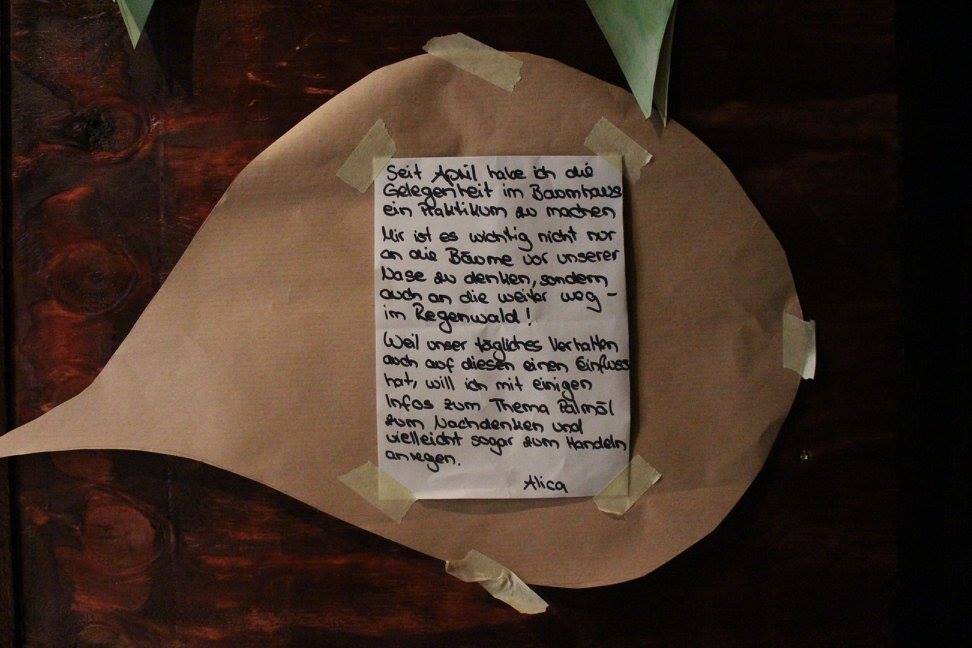 Seit April habe ich die
Gelegenheit im Baumhaus
ein Praktikum zu machen
Mir ist es wichtig nicht nur
an die Bäume vor unserer
Nase zu denken, sondern
auch an die weiter weg -
im Regenwald!
Weil unser tägliches Verhalten
auch auf diesen einen Einfluss
hat, will ich mit einigen
Infos zum Thema Palmöl
zum Nachdenken und
vielleicht sogar zum Handeln
anregen.
Alica